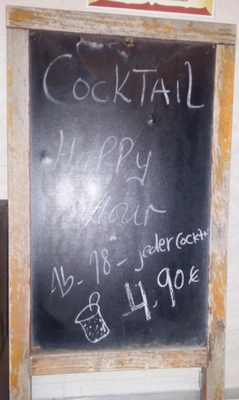 COCKTAIL
HAPPY
Hour
Ab - 18°° - jeder Cockta
4,90 €